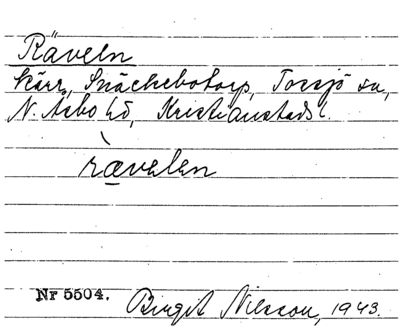 Räveln
kärr, Snäckebotorp, Tossjö sn,
N. Åsbo hd, Kristianstads l.
rævelen
Nr 5504. Birgit Nilsson, 1943.